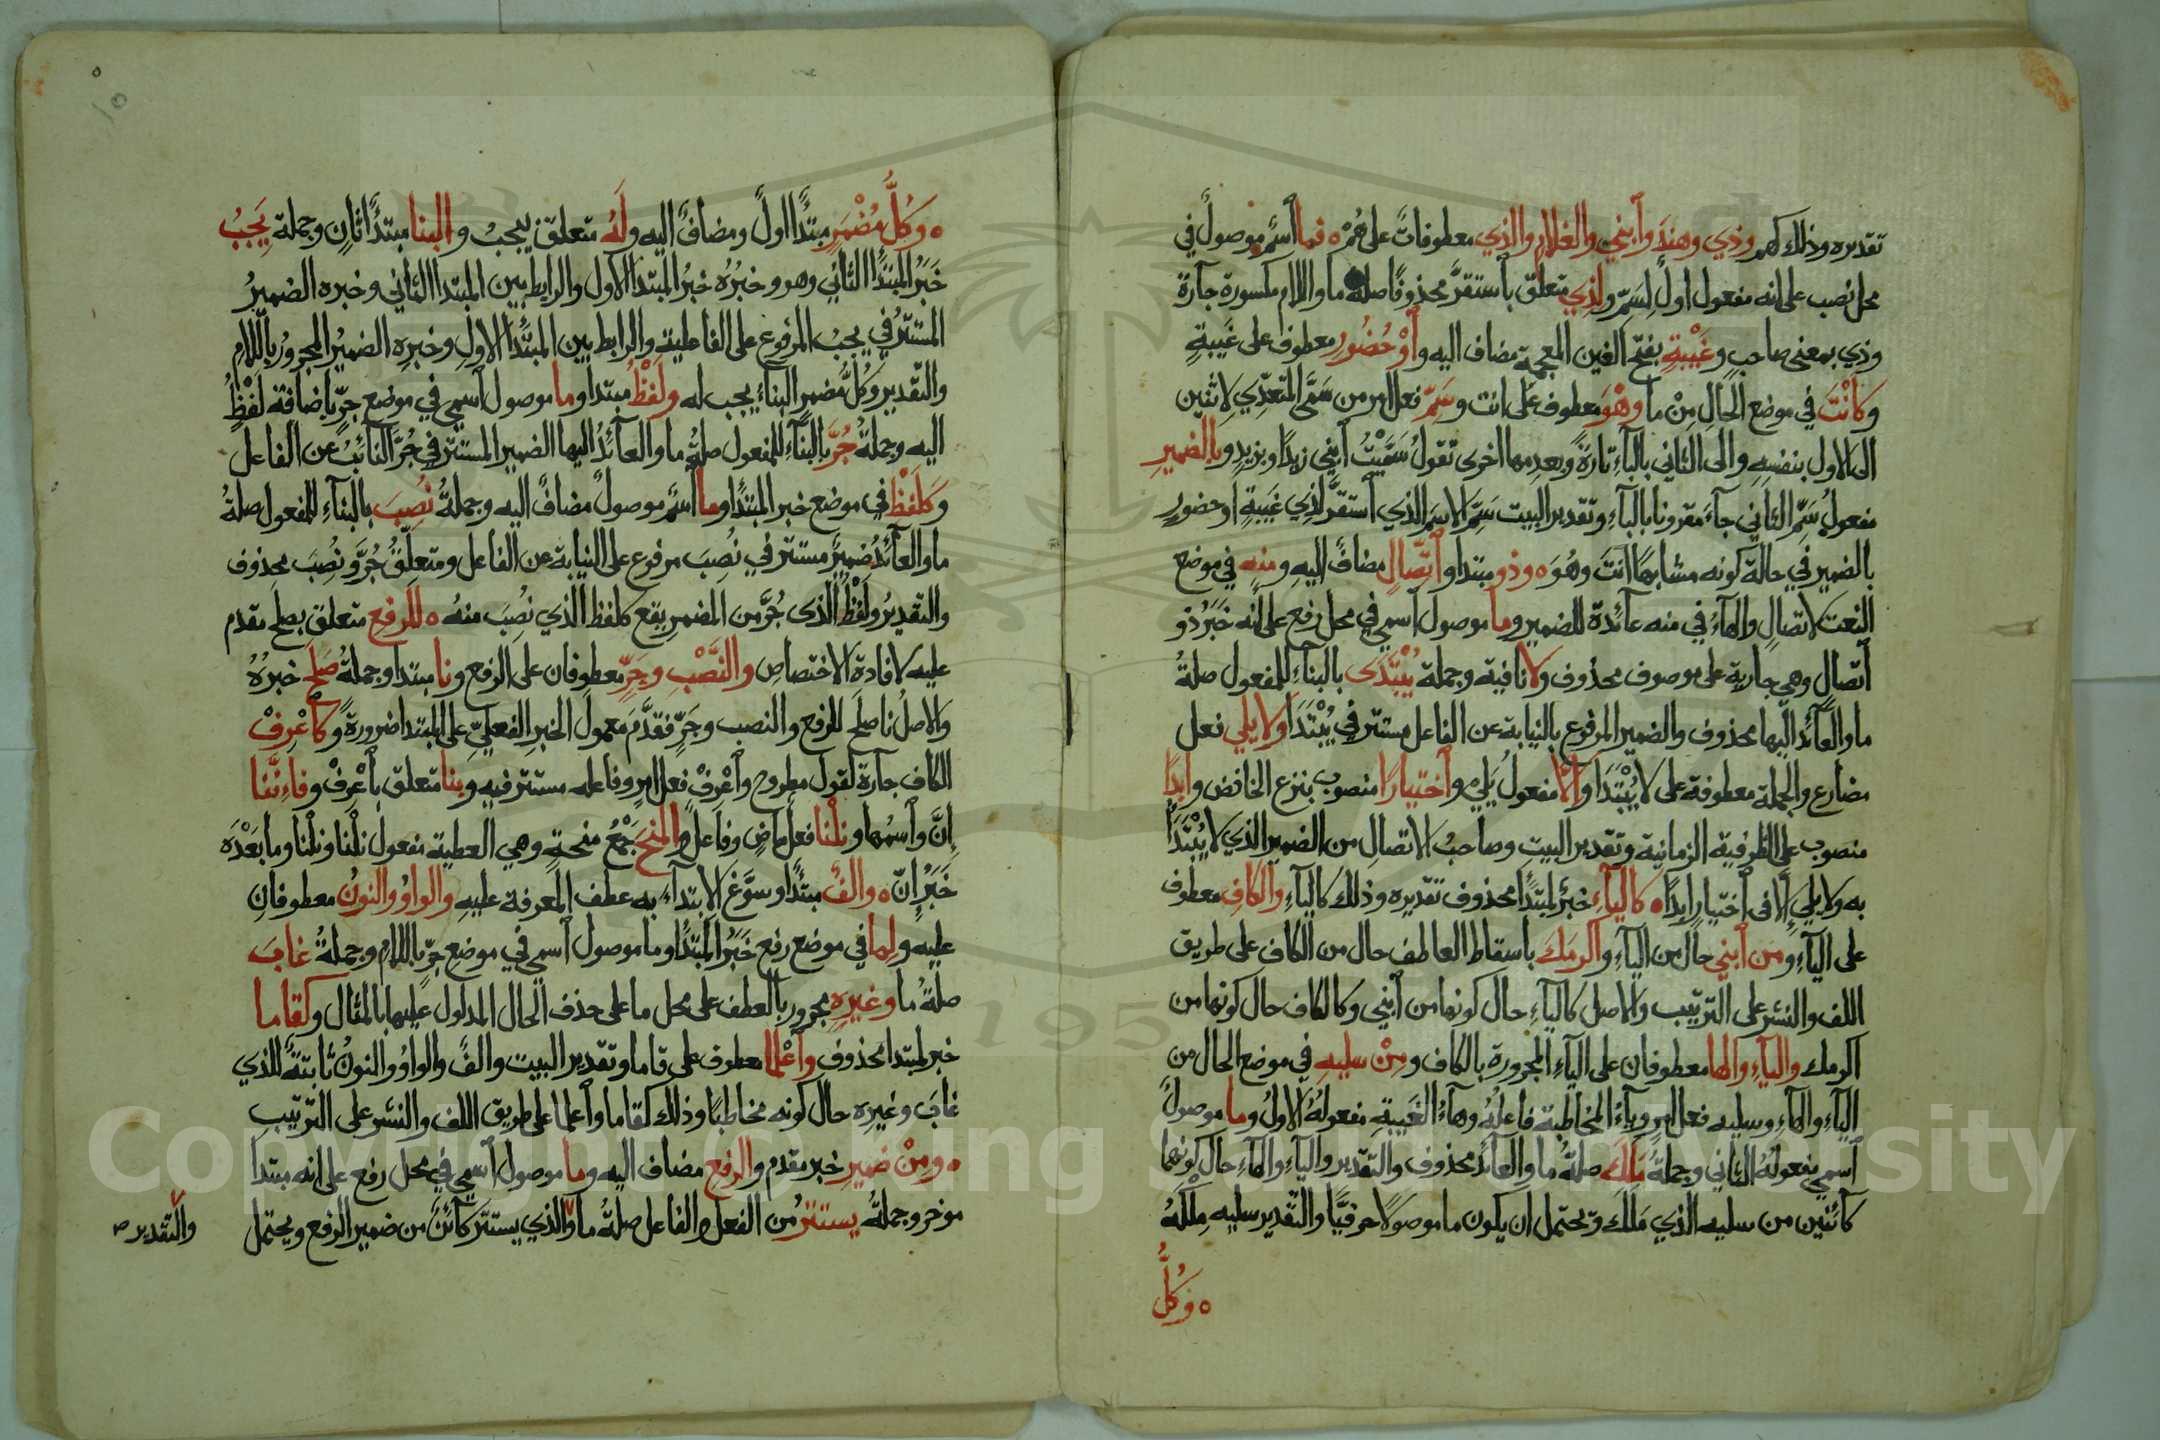 تقديره وذلك كهم وذي وهند وابني والغلام والذي معطوفات على هُمْ ه فما اسم موصول في
محل نصب على انه مفعول اول لِسَمّ ولذي متعلق باستقرّ محذوفا صلة ما واللام مكسورة جآرة
وذي بمعنى صاحبٍ وغَيْبةٍ بفتح الغين المعجمة مضاف اليه وأوْ حُضُورٍ معطوف على غَيبةٍ
وكأنْتَ في موضع الحال مِنْ ما وهْوَ معطوف على انت وسَمّ فعل امر من سَمَّى المتعدِّي لاثنين
الى الاول بنفسِهِ والى الثاني بالبآءِ تارَةً وبعدمها اخرى تقولُ سَمَّيْتُ ابني زيدًا وبزيدٍ وبالضميرِ
مفعولُ سَمِّ الثاني جآءَ مقرونا بالبآءِ وتقدير البيت سَمِّ الاسمَ الذي استقرَّ لِذِي غَيبةٍ اوحضورٍ
بالضمير في حالة كونه مشابهًا انتَ وهُوَ ه وذو مبتدا واتّصالٍ مضافٌ اليهِ ومنه في موضع
النعت لاتصالٍ والهآءُ في منه عآئدة للضمير وما موصول اسمي في محل رفع على انه خَبَرُ ذو
اتّصالٍ وهي جارية على موصوف محذوف ولا نافية وجملة يُبْتَدَى بالبنآءِ للمفعول صلةُ
ما والعآئد اليها محذوف والضمير المرفوع بالنيابة عن الفاعل مستتر في يُبْتَدَا ولا يلي فعل
مضارع والجملة معطوفة على لا يُبْتَدَا وإلّا مفعولُ يَلي واختيارًا منصوب بنزع الخافض وابدًا
منصوب على الظرفية الزمانية وتقدير البيت وصاحبُ الاتصالِ من الضمير الذي لا يُبْتَدَأ
به ولا يلي إلّا في اختيارٍ ابدًا ه كاليآءِ خبرٌ لمبتدأ محذوف تقديره وذلك كاليآءِ والكافِ معطوف
على اليآءِ ومن ابني حال من اليآءِ واكرمَكَ باسقاط العاطف حال من الكاف على طريق
اللف والنشر على الترتيب والاصل كاليآءِ حال كونها من ابني وكالكاف حال كونها من
اكرمك واليآءِ والها معطوفان على اليآءِ المجرورة بالكاف ومِنْ سليهِ في موضع الحال من
اليآءِ والهآءِ وسليه فعل امرٍ ويآءُ المخاطبة فاعلُهُ وهآءُ الغَيبةِ مفعولُهُ الاولُ وما موصولٌ
اسمي مفعولُهُ الثاني وجملةُ مَلَكَ صلةُ ما والعآئد محذوف والتقدير واليآءِ والهآءِ حال كونهما
كآئنين من سليه الذي مَلَكَ ويحتمل ان يكون ما موصولًا حرفيًّا والتقدير سليه مِلْكَهُ
ه وكُلُّ
ه وكُلُّ مُضْمَرٍ مبتدًأ اولٌ ومضافٌ اليه ولَهُ متعلق بيجبُ والبنا مبتدًأ ثانٍ وجملة يَجِبُ
خَبَرُ المبتدَأ الثاني وهو وخبرُهُ خبرُ المبتدَا الاول والرابط بين المبتدا الثاني وخبره الضميرُ
المستترُ في يجبُ المرفوع على الفاعلية والرابط بين المبتَدَأ الاولِ وخبرِه الضميرُ المجرورُ باللامِ
والتقدير وكُلّ مضمرٍ البنآءُ يجب له ولَفْظُ مبتدا وما موصول اسمي في موضع جرٍّ باضافة لَفْظُ
اليه وجملةُ جُرَّ بالبنآءِ للمفعول صلةُ ما والعآئدُ اليها الضمير المستتر في جُرَّ النآئبُ عن الفاعل
وكَلَفْظِ في موضع خبر المبتدا وما اسم موصولٌ مضافٌ اليه وجملةُ نُصِبَ بالبنآءِ للمفعول صلةُ
ما والعآئدُ ضميرٌ مستتر في نُصِبَ مرفوع على النيابة عن الفاعل ومتعلقُ جُرَّ ونُصِبَ محذوف
والتقديرُ ولَفْظُ الذى جُرَّ من المضمر يقع كلفظ الذي نُصِبَ منهُ ه للرفعِ متعلق بصلح مقدم
عليه لافادة الاختصاصِ والنَّصْبِ وجَرٍّ معطوفان على الرفع ونا مبتدا وجملةُ صَلح خبرُهُ
والاصلُ نا صلح للرفع والنصب وجَرٍّ فقدَّمَ معمول الخبر الفعليّ على المبتدا ضرورةً وكاعْرِفْ
الكاف جآرة لقول مطروح واعْرِفْ فعل امرٍ وفاعله مستتر فيه وبنا متعلق باعْرِفْ وفاءِنَّنا
إنَّ واسمُها ونلْنا فعلٌ ماضٍ وفاعل والمنَح جَمْعُ منحةٍ وهي العطية مفعول نلْنا ونلنا وما بَعْدَه
خَبَرُ إنّ ه والفٌ مبتدًأ وسوَّغ الابتدآءَ به عطف المعرفة عليهِ والواوُ والنونُ معطوفانِ
عليه ولِما في موضع رفع خَبَرُ المبتدأ وما موصول اسمي في موضع جرّ باللام وجملةُ غابَ
صلةُ ما وغيرِهِ مجرور بالعطف على محل ما على حذف الحال المدلول عليها بالمثال وكقاما
خبر لمبتدا محذوف واعْلما معطوف على قاما وتقدير البيت والفٌ والواوُ والنونُ ثابتةٌ للذي
غابَ وغيرِه حال كونه مخاطبًا وذلك كقاما واعلما على طريق اللف والنشر على الترتيب
ه ومِنْ ضميرِ خبر مقدم والرفعِ مضاف اليه وما موصول اسمي في محل رفع على انه مبتدَا
موخر وجملةُ يستترُ من الفعل والفاعل صلةُ ما والذي يستتر كآئنٌ من ضمير الرفع ويحتمل
والتقدير صح
Copyright © King Saud University
1957